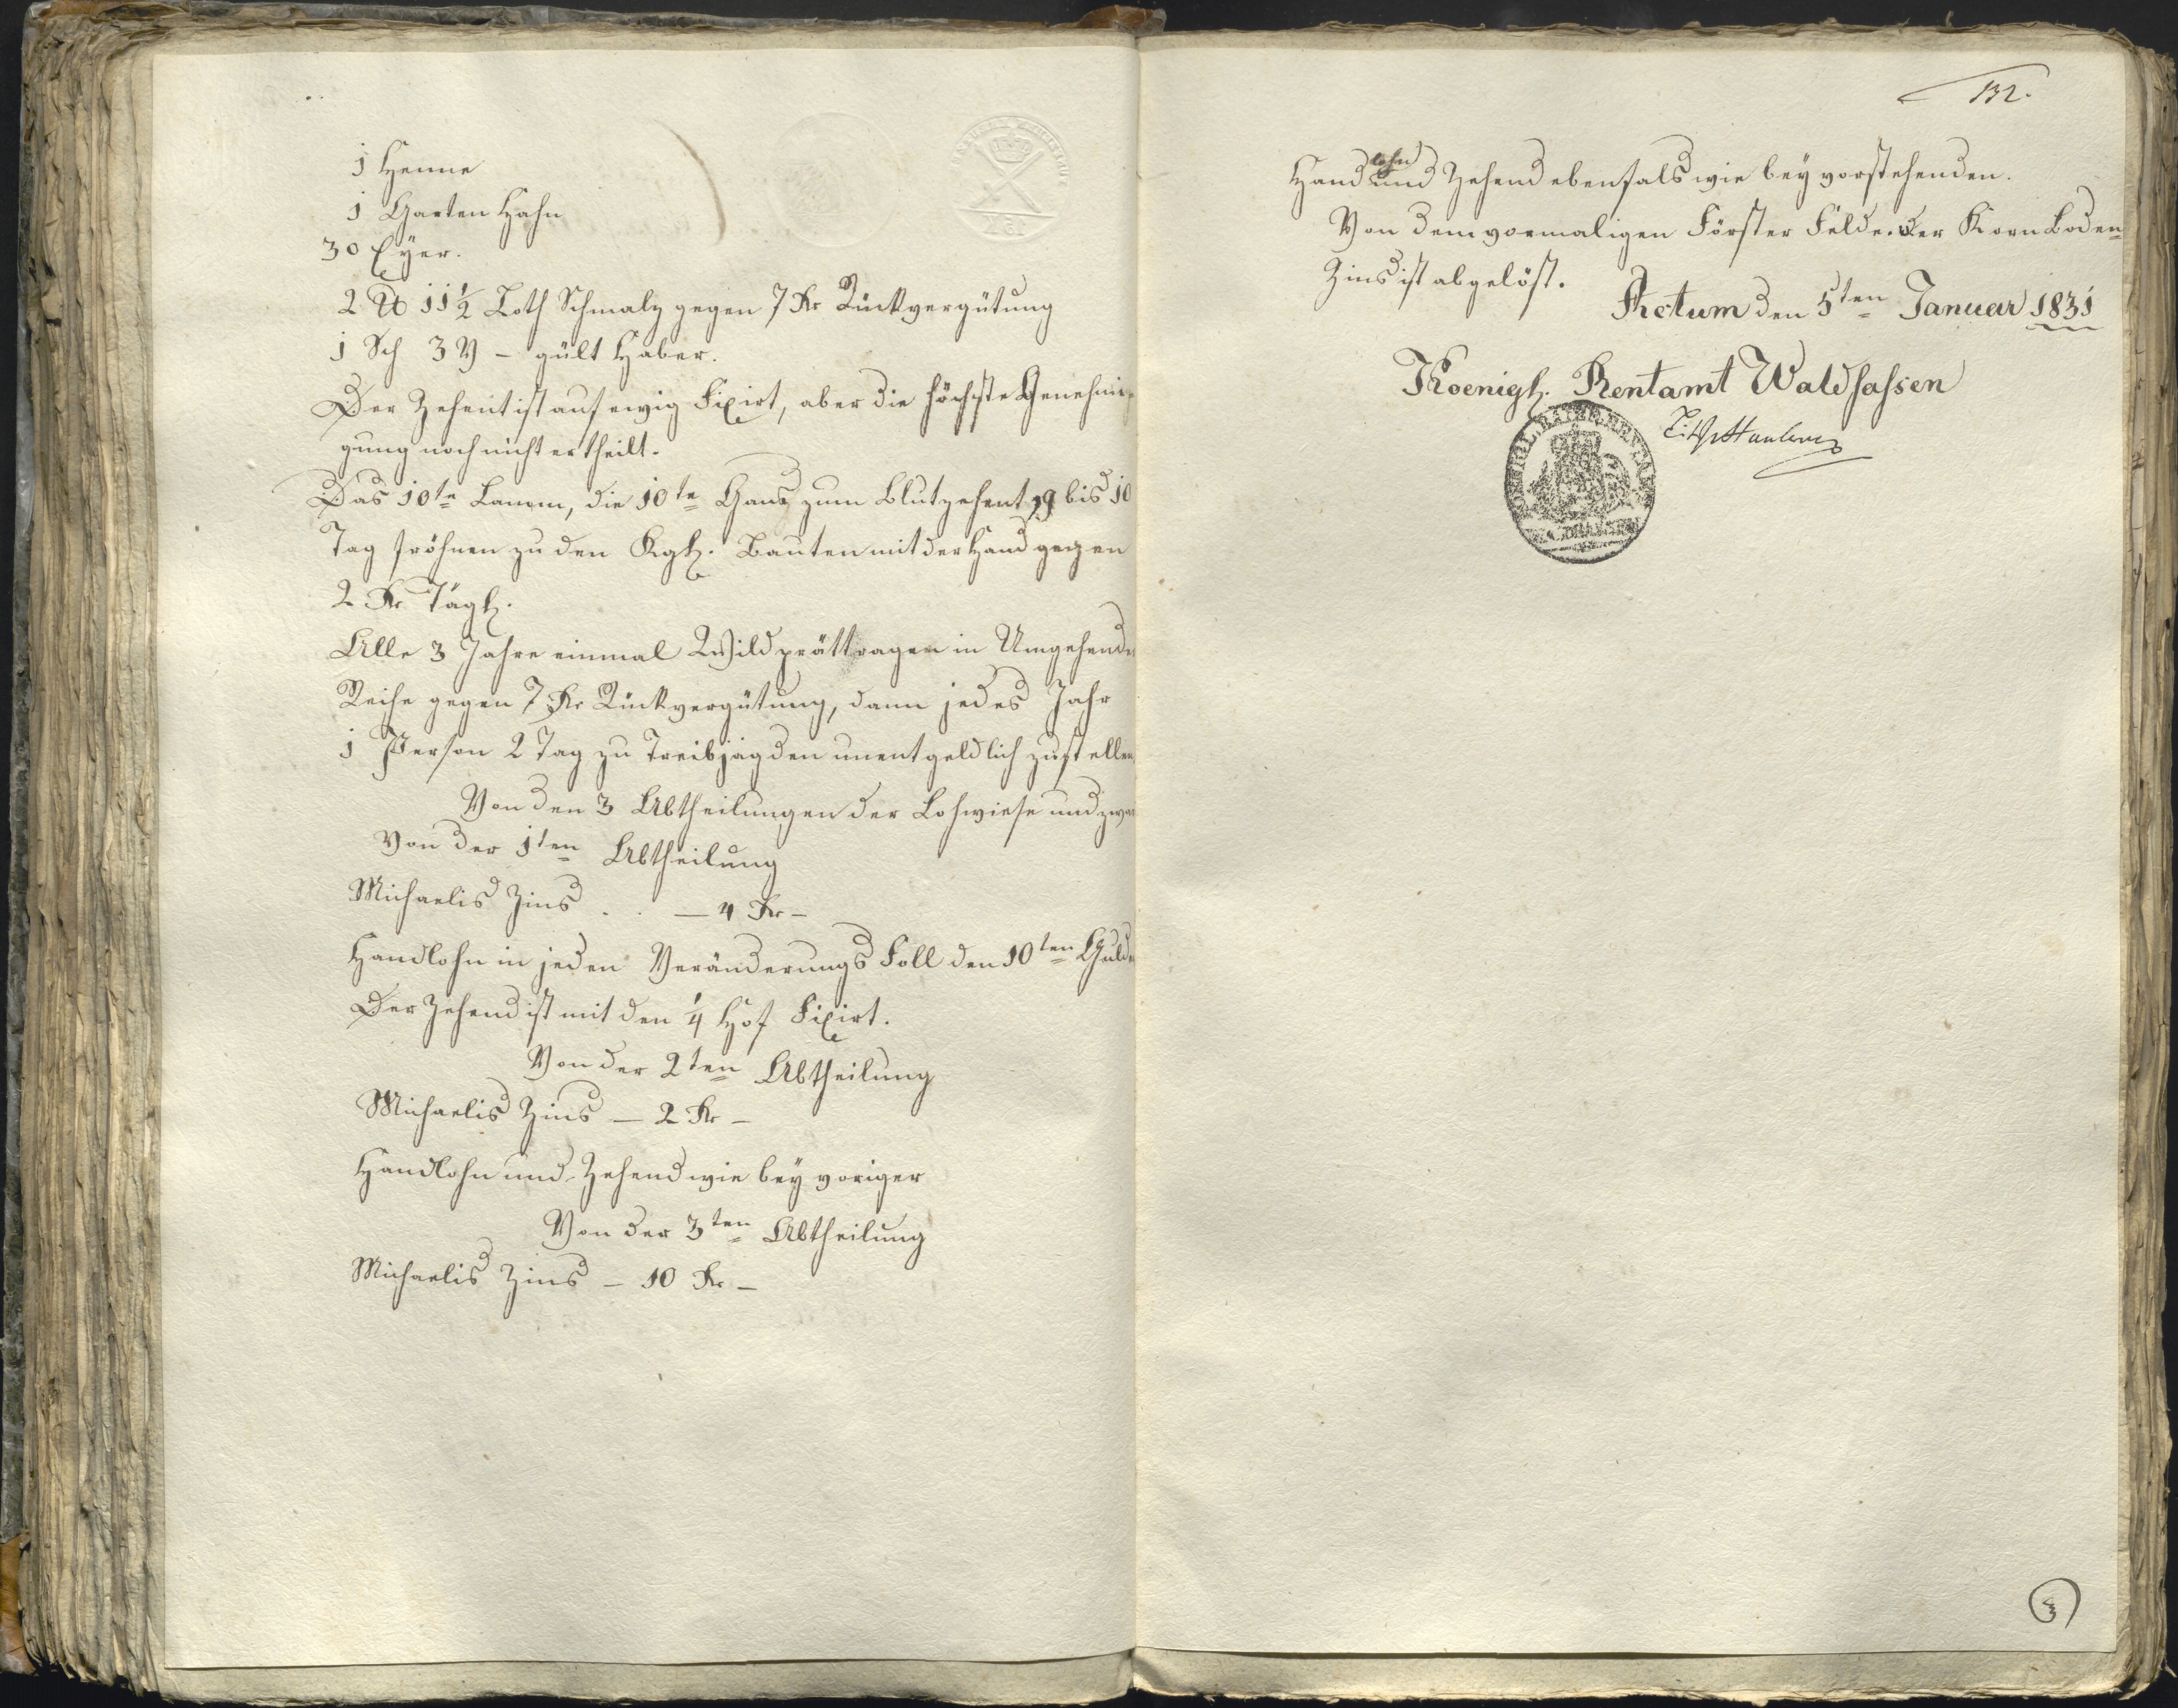 1 Henne
1 Garten Hahn
30 Eyer.
2 ℔ 11 1/2 Loth Schmalz gegen 7 Kr Rückvergütung
1 Sch 3 V – gült Haber.
Der Zehent ist auf ewig Fixirt, aber die höchste Genehmi-
gung noch nicht ertheilt.
Das 10te Lamm, die 10te Gans zum Blutzehent, 9 bis 10
Tag fröhnen zu den Kgl. Bauten mit der Hand gegen
2 Kr Tägl.
Alle 3 Jahre einmal Wildprättragen in Umgehende
Reihe gegen 7 Kr Rückvergütung, dann jedes Jahr
1 Person 2 Tag zu Treibjagden unentgeldlich zustellen
Von den 3 Abtheilungen der Lohwiese und zwar
Von der 1ten Abtheilung
Michaelis Zins . . — 4 Kr –
Handlohn in jeden Veränderungs Fall den 10ten Gulde
Der Zehend ist mit den 1/4 Hof Fixirt.
Von der 2ten Abtheilung
Michaelis Zins — 2 Kr –
Handlohn und Zehend wie bey voriger
Von der 3ten Abtheilung
Michaelis Zins – 10 Kr –
132.
Handlohn und Zehend ebenfals wie bey vorstehenden.
Von dem vormaligen Förster Felde. Der Korn Boden-
Zins ist abgelöst.
Actum den 5ten Januar 1831
Koenigl. Rentamt Waldsassen
3